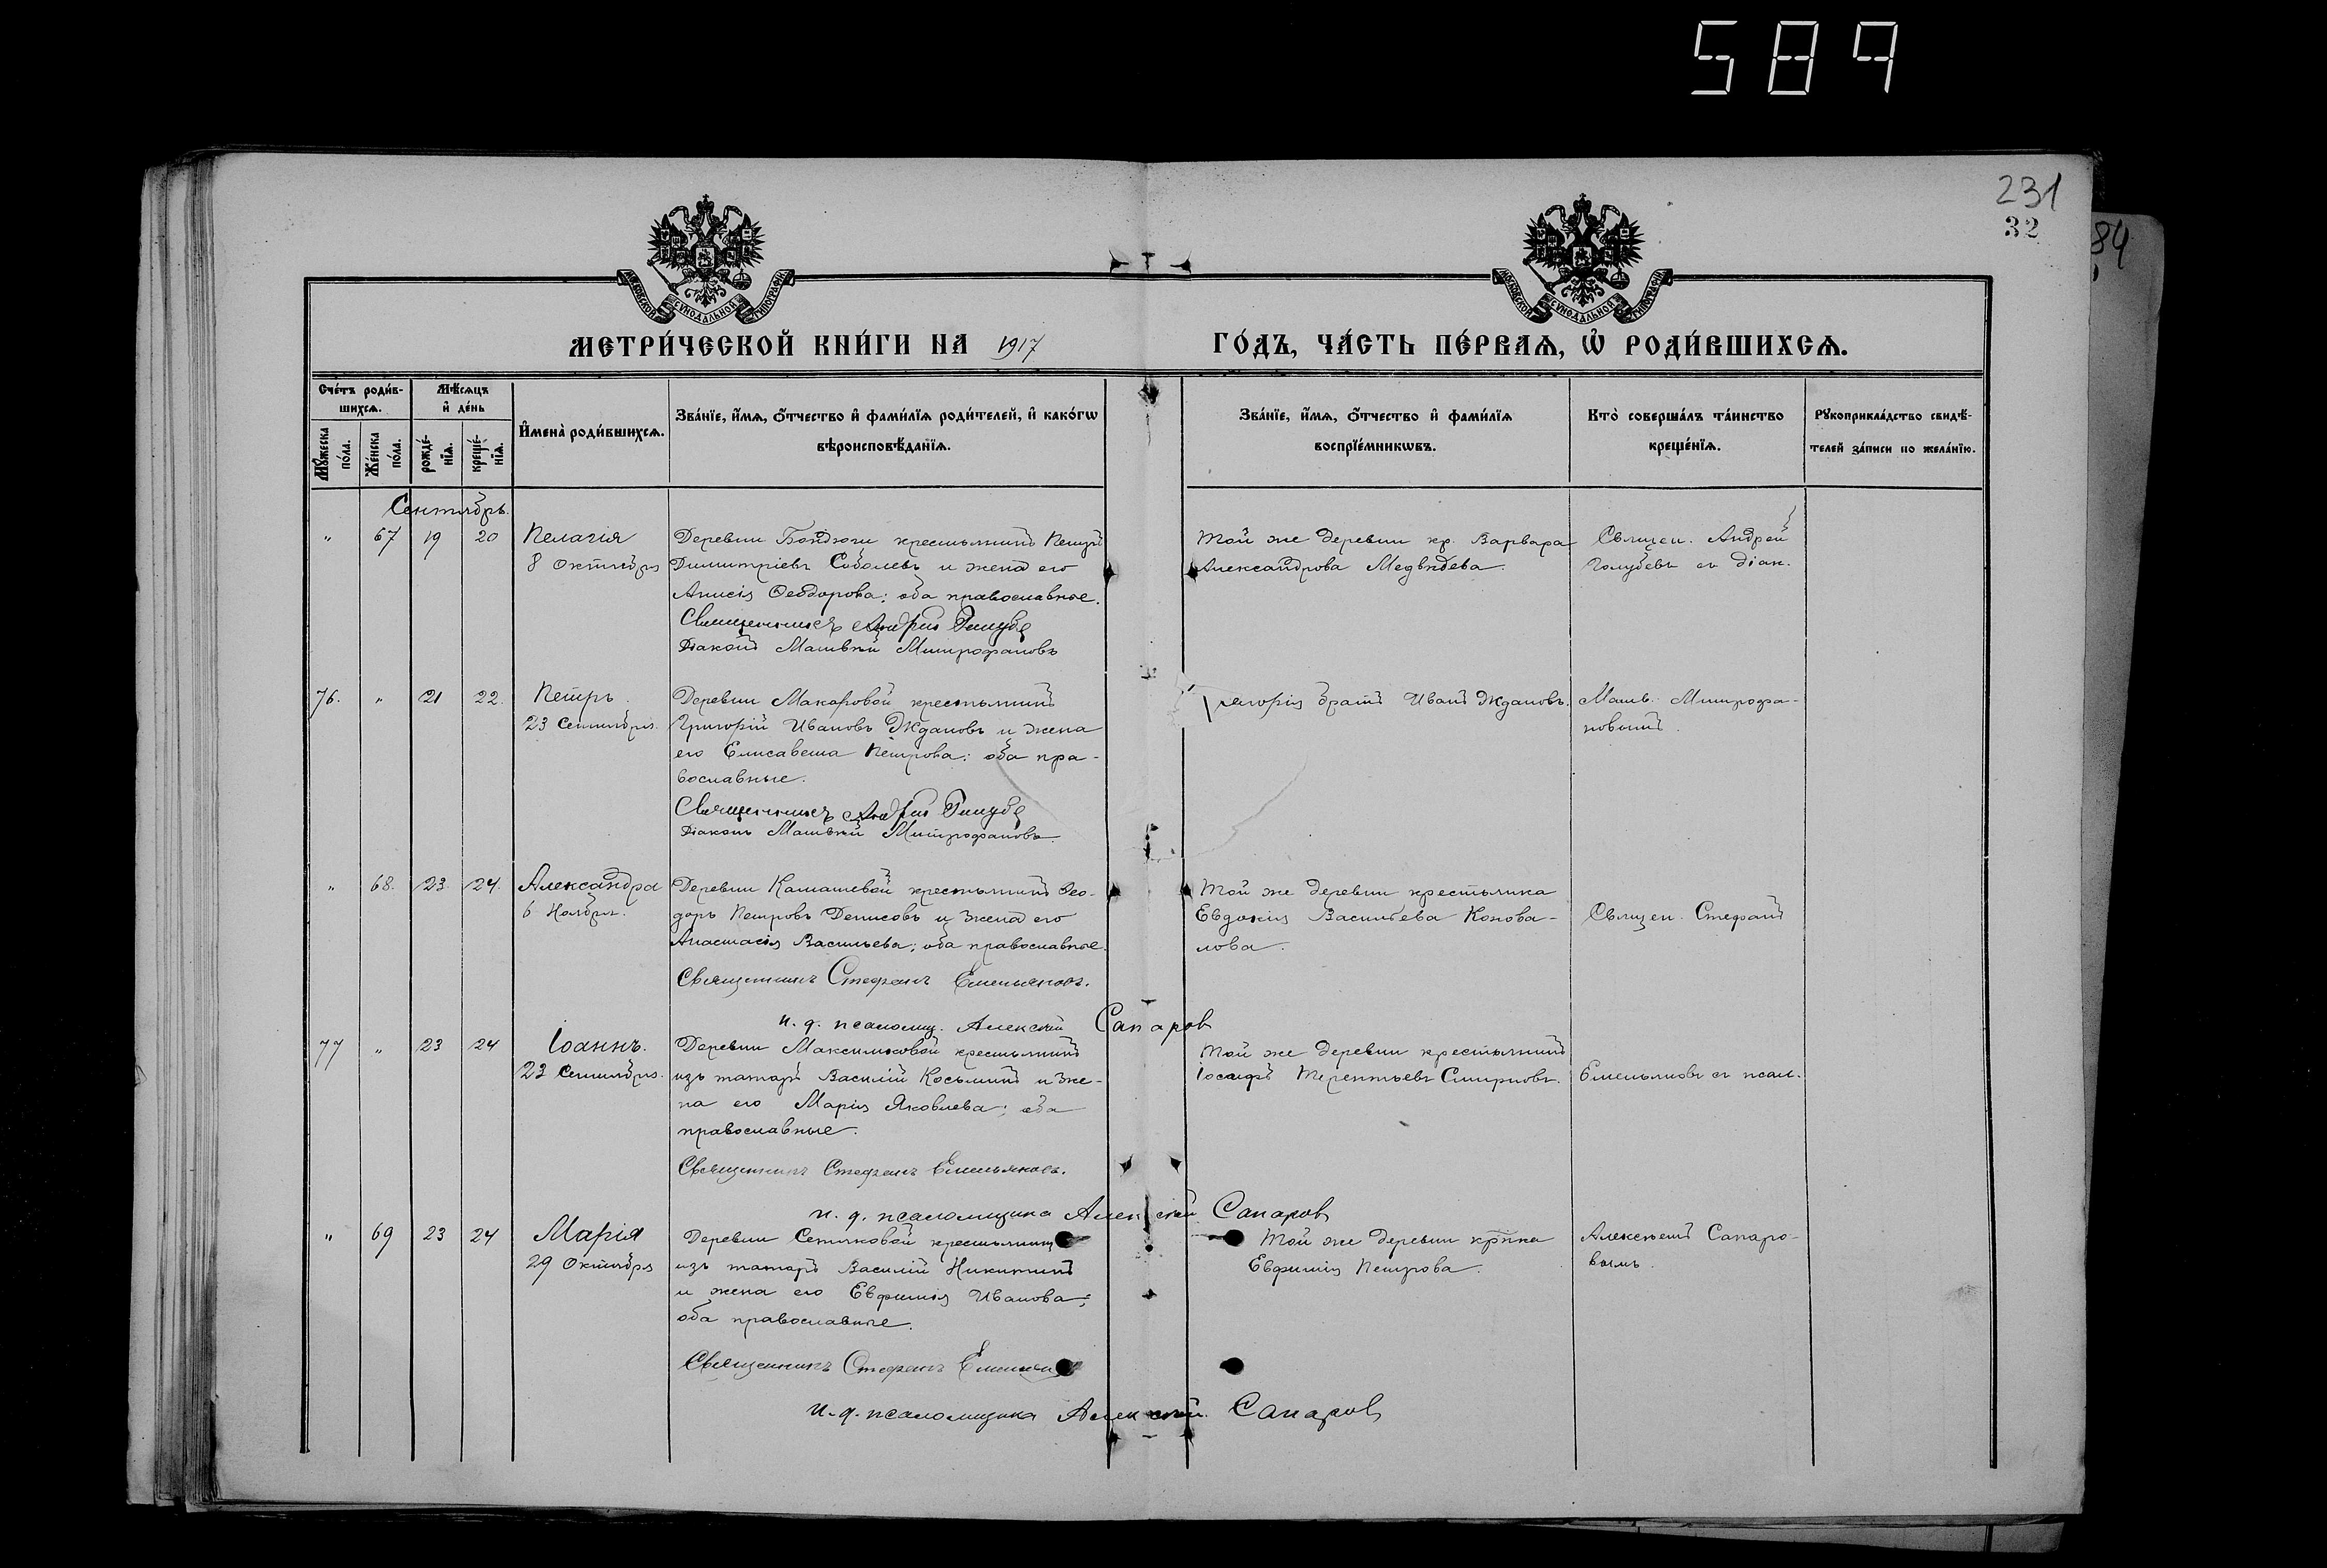 589
231
32
84
МОСКОВСКОЙ СѴНОДАЛЬНОЙ ТИПОГРАФІИ
МОСКОВСКОЙ СѴНОДАЛЬНОЙ ТИПОГРАФІИ
МЕТРИ́ЧЕСКОЙ КНИ́ГИ НА 1917 ГО́ДЪ, ЧА́СТЬ ПЕ́РВАѦ, Ѡ҆ РОДИ́ВШИХСѦ.
Сче́тъ роди́в-
шихсѧ.
Мꙋ́жеска по́ла.
Же́нска по́ла.
Мѣ́сѧцъ
и҆ де́нь
рожде́-
нїѧ.
креще́-
нїѧ.
И҆мена̀ роди́вшихсѧ.
Зва́нїе, и҆́мѧ, ѻ҆́тчество и҆ фами́лїѧ роди́телей, и҆ како́гѡ
вѣроисповѣ́данїѧ.
Зва́нїе, и҆́мѧ, ѻ҆́тчество и҆ фами́лїѧ
воспрїе́мникѡвъ.
Кто̀ соверша́лъ та́инство
креще́нїѧ.
Рꙋкоприкла́дство свидѣ́-
телей за́писи по жела́нїю.
Сентябрь.
" 67 19 20 Пелагія
8 Октября
Деревни Бондюги крестьянинъ Петръ
Димитріевъ Соболевъ и жена его
Анисія Ѳеодорова; оба православные.
Священникъ Андрей Голубе
Діаконъ Матвѣй Митрофановъ
Той же деревни кр. Варвара
Александрова Медвѣдева.
Священ. Андрей
Голубевъ съ діак.
76. " 21 22. Петръ.
23 Сентября.
Деревни Макаровой крестьянинъ
Григорій Ивановъ Ждановъ и жена
его Елисавета Петрова; оба пра-
вославные.
Священникъ Андрей Голубе
Діаконъ Матвѣй Митрофановъ.
Григорія братъ Иванъ Ждановъ.
Матв. Митрофа-
новымъ.
" 68. 23. 24. Александра
6 Ноября.
Деревни Камашевой крестьянинъ Ѳео-
доръ Петровъ Денисовъ и жена его
Анастасія Васильева; оба православные.
Священникъ Стефанъ Емельяновъ.
и. д. псаломщ. Алексѣй Сапаров
Той же деревни крестьянка
Евдокія Васильева Конова-
лова.
Священ. Стефанъ
77 " 23 24 Іоаннъ.
23 Сентября.
Деревни Максимковой крестьянинъ
изъ татаръ Василій Косьминъ и же-
на его Марія Яковлева; оба
православные.
Священникъ Стефанъ Емельяновъ.
и. д. псаломщика Алексѣй Сапаров
Той же деревни крестьянинъ
Іосифъ Терентьевъ Смирновъ.
Емельяновъ съ псал.
" 69 23 24 Марія
29 Октября
Деревни Сетяковой крестьянинъ
изъ татаръ Василій Никитинъ
и жена его Евфимія Иванова;
оба православные.
Священникъ Стефанъ
и. д. псаломщика Алексѣй Сапаров
Той же деревни кр̃нка
Евфимія Петрова.
Алексѣемъ Сапаро-
вымъ.